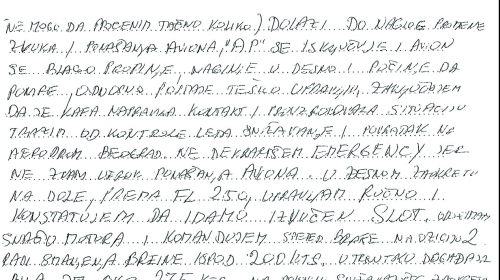 NE MOGU DA PROCENIM TAČNO KOLIKO.) DOLAZI DO NAGLE PROMENE
ZVUKA I PONAŠANJA AVIONA, "A.P" SE ISKLJUČUJE I AVION
SE BLAGO PROPINJE, NAGINJE U DESNO I POČINJE DA
PONIRE, ODNOSNO POSTAJE TEŠKO UPRAVLJIV. ZAKLJUČUJEM
DA JE KAFA NAPRAVILA KONTAKT I PROUZROKOVALA SITUACIJU
TRAŽIM OD KONTROLE LETA SNIŽAVANJE I POVRATAK NA
AERODROM BEOGRAD. NE DEKLARIŠEM EMERGENCY JER
NE ZNAM UZROK PONAŠANJA AVIONA. U DESNOM ZAOKRETU
NA DOLE, PREMA FL 250, UPRAVLJAM RUČNO I
KONSTATUJEM DA IMAMO IZVUČEN SLOT. ODUZIMAM
SNAGU MOTORA I KOMANDUJEM SPEED BRAKE NA POZICIJU 2
RADI SMANJENJA BRZINE ISPOD 200 KTS. U TRENUTKU DOGAĐAJA